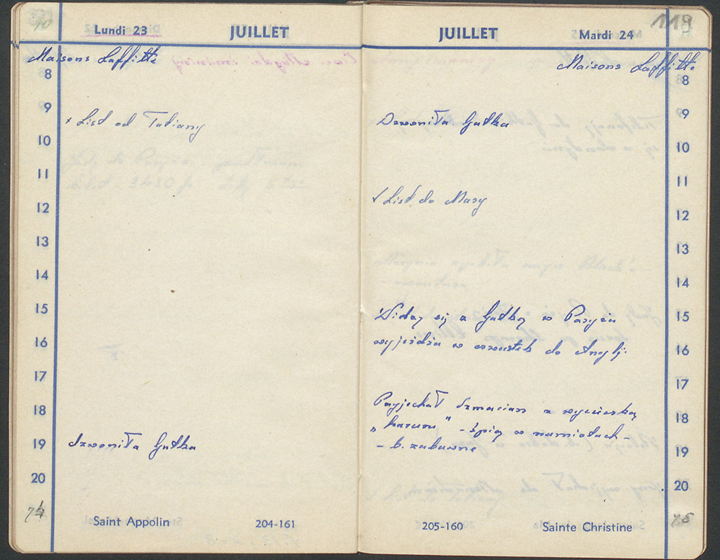 Lundi 23 JUILLET
Maisons Laffitte
8
9
x List od Tatiany
10
11
12
13
14
15
16
17
18
19
dzwoniła Gutka
20
74
Saint Appolin 204-161
119
JUILLET Mardi 24
Maisons Laffitte
8
9
Dzwoniła Gutka
10
11
List do Mary
12
13
14
15
Widzę się z Gutką w Paryżu
wyjeżdża w czwartek do Anglj.
16
17
Przyjechał z wycieczką
18
" - śpią w namiotach -
19
- b. zabawne
20
75
205-160 Sainte Christine